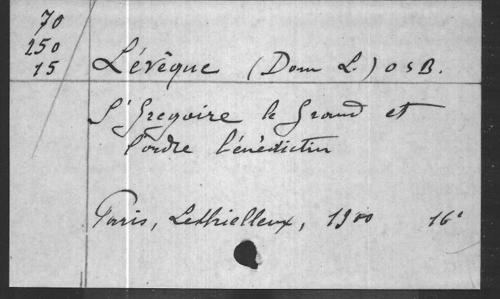 70
250
15
Lévêque (Dom L.) OSB.
St Gregoire le Grand et
l'ordre bénédictin
Paris, Lethielleux, 1900 16°